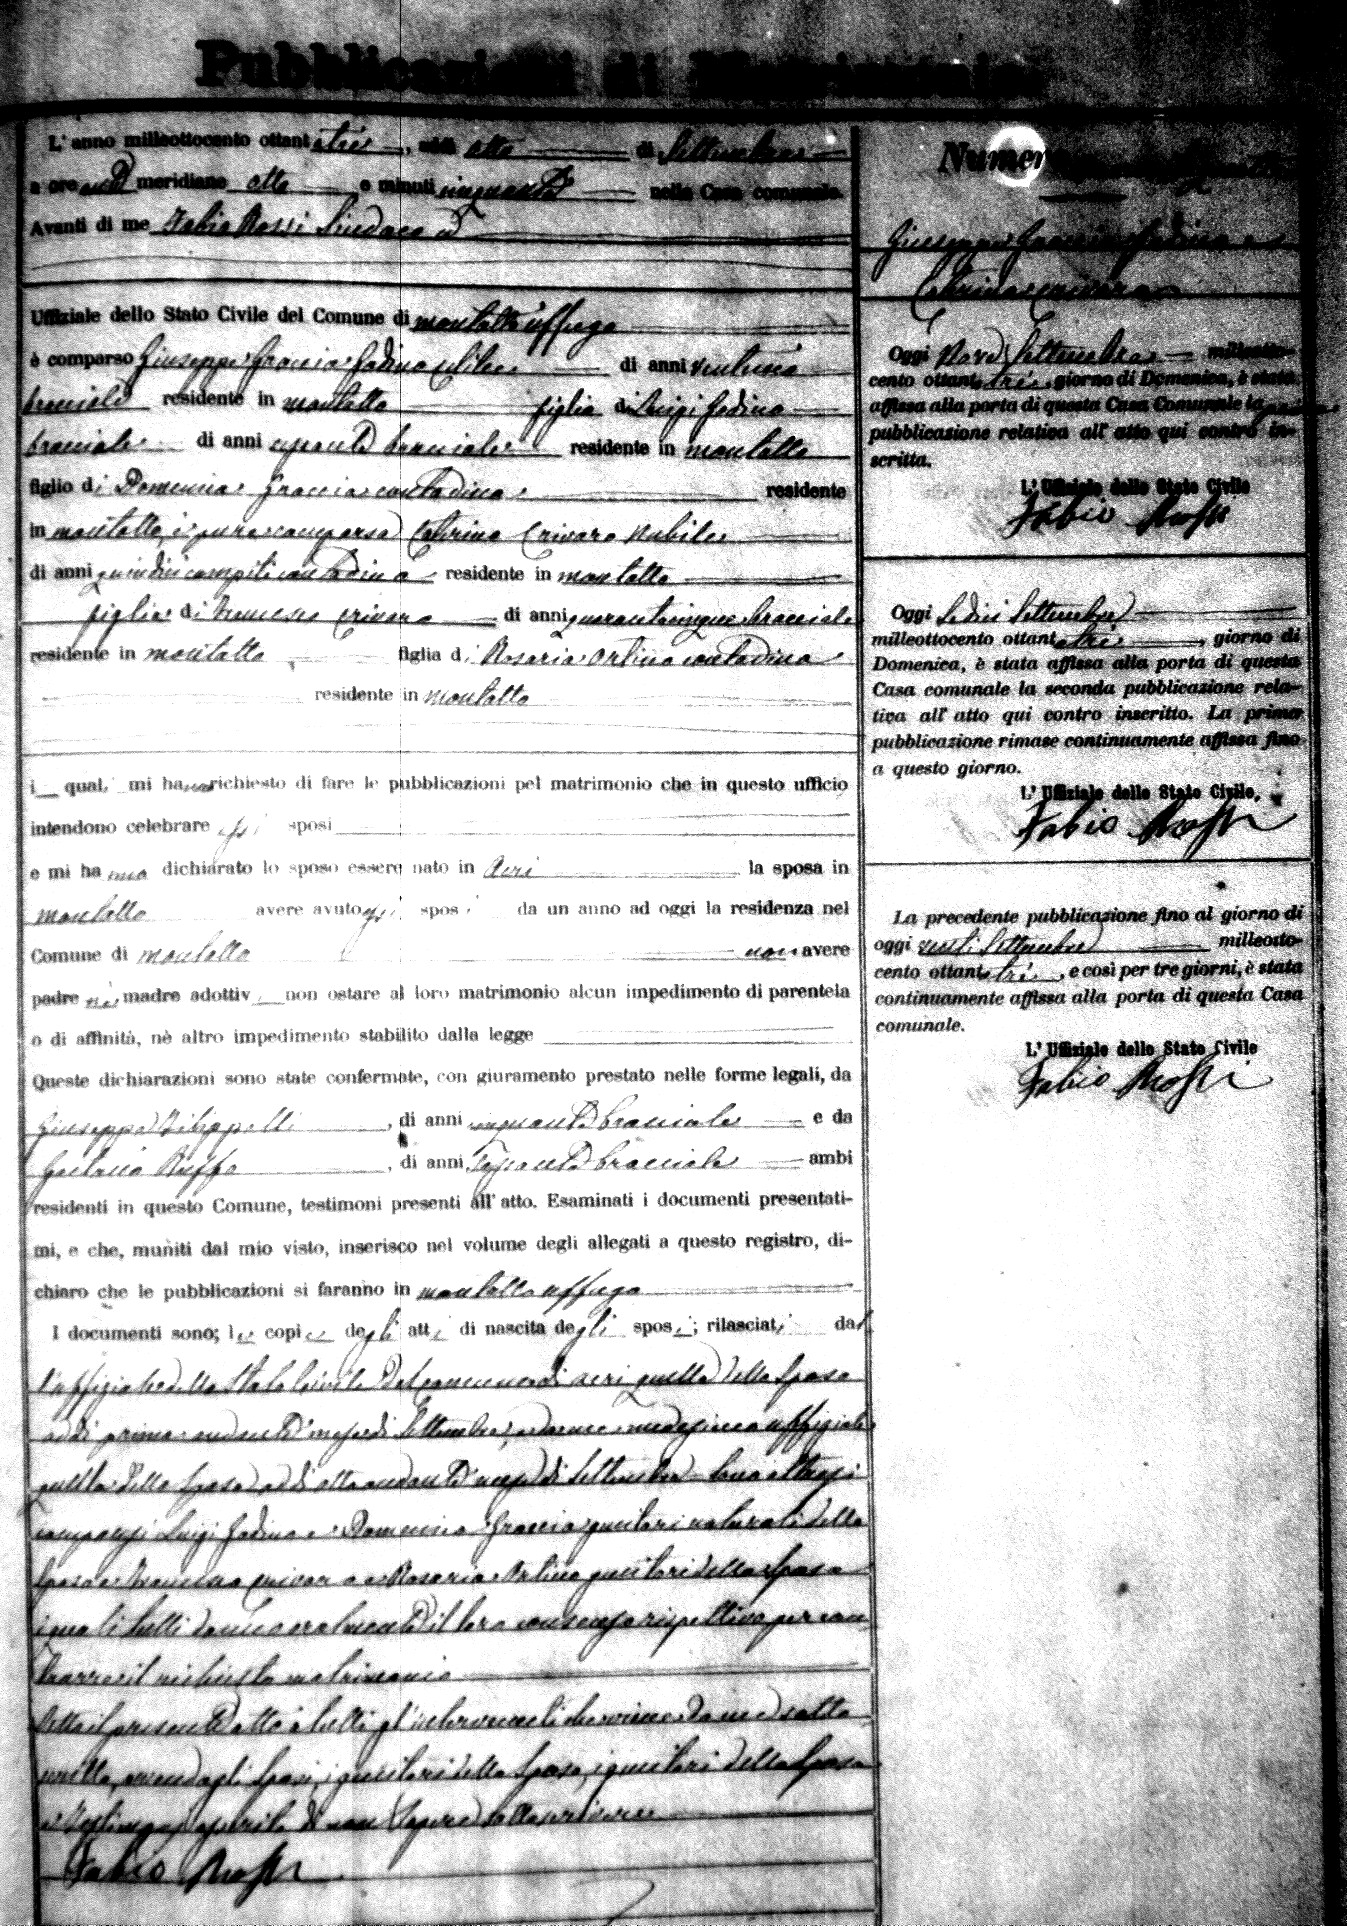 Pubblicazioni di Matrimonio
L'anno milleottocento ottantatrè, addì otto di Settembre
a ore anti meridiane otto e minuti cinquanta nella Casa comunale.
Avanti di me Fabio Rossi Sindaco ed
Uffiziale dello Stato Civile del Comune di montalto uffugo
è comparso Giuseppe Graccia Fadino celibe di anni
bracciale residente in montalto figlio di Luigi Fadino
bracciale di anni bracciale residente in montalto
figlio di Domenica Graccia contadina residente
in montalto, è pure comparsa Catrina Crivaro Nubile
di anni quindici compiti contadina residente in montalto
figlia di Francesco Crivaro di anni quarantacinque bracciale
residente in montalto figlia di Rosaria Orlino contadina
residente in montalto
i quali mi hanno richiesto di fare le pubblicazioni pel matrimonio che in questo ufficio
intendono celebrare essi sposi
e mi hanno dichiarato lo sposo essere nato in Acri la sposa in
montalto avere avuto gli sposi da un anno ad oggi la residenza nel
Comune di montalto non avere
padre nè madre adottiv non ostare al loro matrimonio alcun impedimento di parentela
o di affinità, nè altro impedimento stabilito dalla legge
Queste dichiarazioni sono state confermate, con giuramento prestato nelle forme legali, da
Giuseppe Filippelli, di anni cinquanta bracciale e da
Gaetano Ruffo, di anni bracciale ambi
residenti in questo Comune, testimoni presenti all'atto. Esaminati i documenti presentati-
mi, e che, muniti dal mio visto, inserisco nel volume degli allegati a questo registro, di-
chiaro che le pubblicazioni si faranno in montalto uffugo
I documenti sono; le copie degli atti di nascita degli sposi; rilasciati dal
l'uffiziale dello Stato Civile del Comune di Acri quella dello Sposo
addì primo andante mese di Settembre, e da me medesimo uffiziale
quella della Sposa addì otto andante mese di Settembre Sono altresì
comparsi Luigi Fadino e Domenica Graccia genitori naturali dello
Sposo e Francesco Crivaro e Rosaria Orlino genitori della Sposa
i quali tutti danno oralmente il loro consenso rispettivo per con
trarre il richiesto matrimonio
Letto il presente atto a tutti gl'intervenuti che viene da me sotto
scritto, avendo gli Sposi, i genitori dello Sposo, i genitori della Sposa
e Testimoni asserito di non Sapere sottoscrivere
Fabio Rossi
Numero
Giuseppe Graccia Fadino e
Catrina Crivaro
Oggi Nove Settembre milleotto-
cento ottantatrè, giorno di Domenica, è stata
affissa alla porta di questa Casa Comunale la prima
pubblicazione relativa all'atto qui contro in-
scritta.
L'Uffiziale dello Stato Civile
Fabio Rossi
Oggi Sedici Settembre
milleottocento ottantatrè, giorno di
Domenica, è stata affissa alla porta di questa
Casa comunale la seconda pubblicazione rela-
tiva all'atto qui contro inscritto. La prima
pubblicazione rimase continuamente affissa fino
a questo giorno.
L'Uffiziale dello Stato Civile,
Fabio Rossi
La precedente pubblicazione fino al giorno di
oggi venti Settembre milleotto-
cento ottantatrè, e così per tre giorni, è stata
continuamente affissa alla porta di questa Casa
comunale.
L'Uffiziale dello Stato Civile
Fabio Rossi